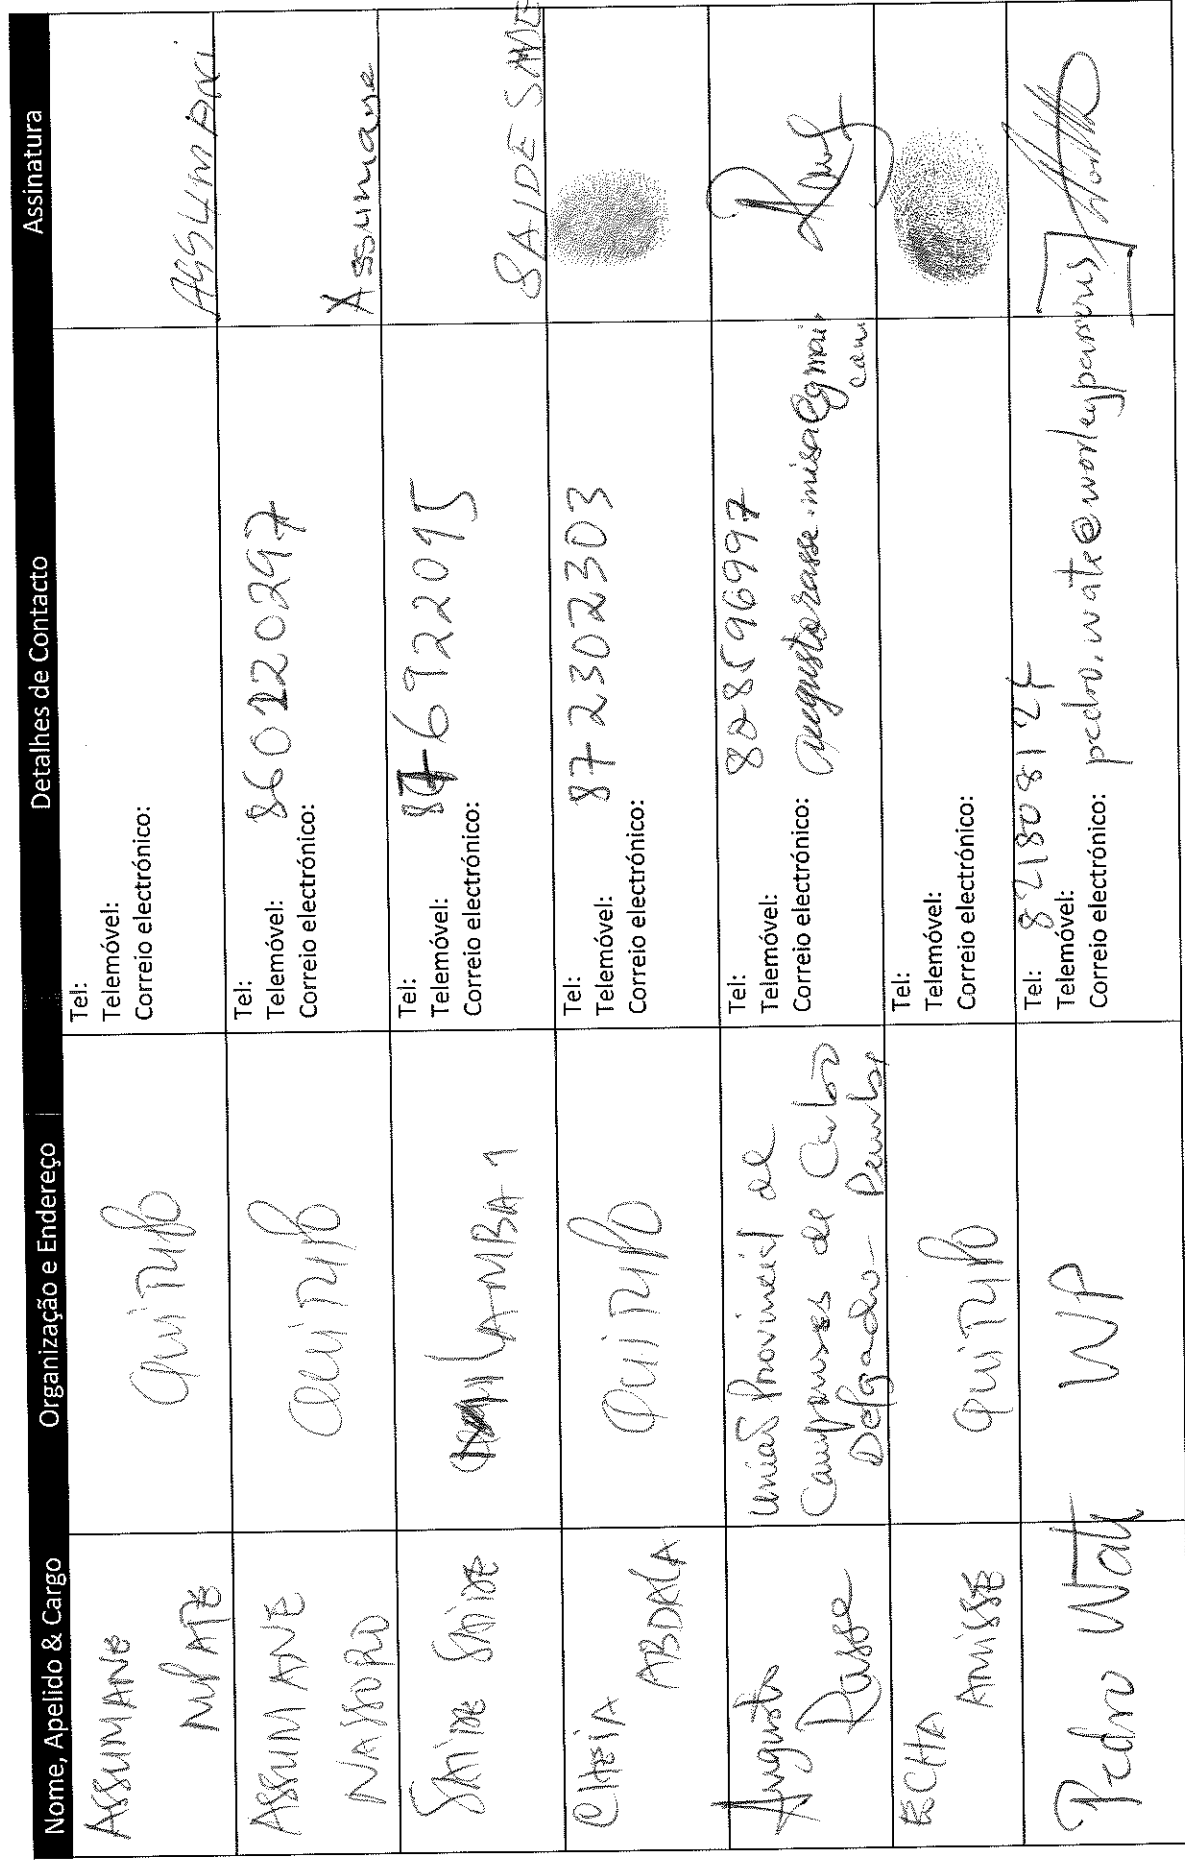 Nome, Apelido & Cargo Organização e Endereço Detalhes de Contacto Assinatura
ASSUMANE
QUITUPO
Tel:
Telemóvel:
Correio electrónico:
ASSUMANI
ASSUMANE
NASSORO
QUITUPO
Tel:
Telemóvel: 860220297
Correio electrónico:
Assumane
SAIDE SAIDE
Tel:
Telemóvel: 6922095
Correio electrónico:
SAIDE SAIDE
ABDALA
QUITUPO
Tel:
Telemóvel: 872302303
Correio electrónico:
Augusto
Rasse
União Provincial de
Camponeses de Cabo
Delgado - Pemba
Tel:
Telemóvel: 828596997
Correio electrónico: augustorasse.misa@gmail.
com
AMISSE
QUITUPO
Tel:
Telemóvel:
Correio electrónico:
Pedro Wate
WP
Tel:
Telemóvel:
Correio electrónico: pedro.wate@worleyparsons